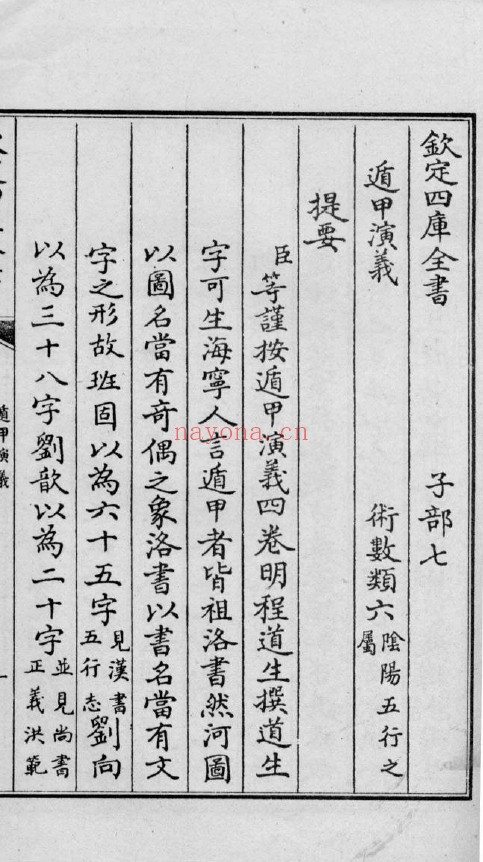 欽定四庫全書 子部七
遁甲演義 術數類六 陰陽五行之屬
提要
臣等謹按遁甲演義四卷明程道生撰道生
字可生海寧人言遁甲者皆祖洛書然河圖
以圖名當有奇偶之象洛書以書名當有文
字之形故班固以為六十五字 見漢書五行志 劉向
以為三十八字劉歆以為二十字 並見尚書正義洪範
遁甲演義
nayona.cn